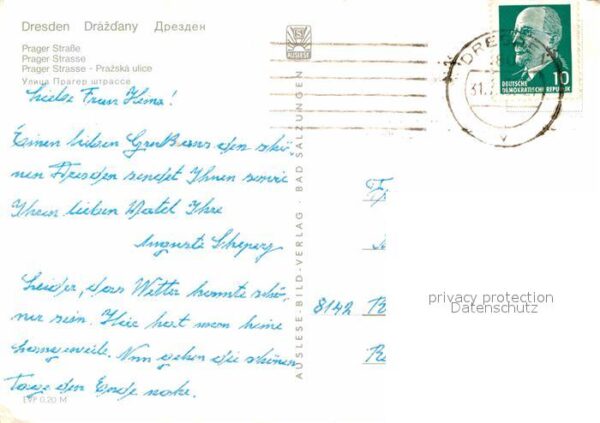 Dresden Drážďany Дрезден
Prager Straße
Prager Strasse
Prager Strasse - Pražská ulice
Улица Прагер штрассе
Liebe Frau Heina!
Einen lieben Gruß aus den schö-
nen Dresden sendet Ihnen sowie
Ihren lieben Vatel Ihre
Auguste
Leider, das Wetter konnte schö-
ner sein. Hier hat man keine
Langeweile. Nun gehen die schönen
Tage den Ende nahe.
EVP 0,20 M
AUSLESE-BILD-VERLAG · BAD SALZUNGEN
DRESD
31.
10
DEUTSCHE
DEMOKRATISCHE REPUBLIK
8142
privacy protection
Datenschutz